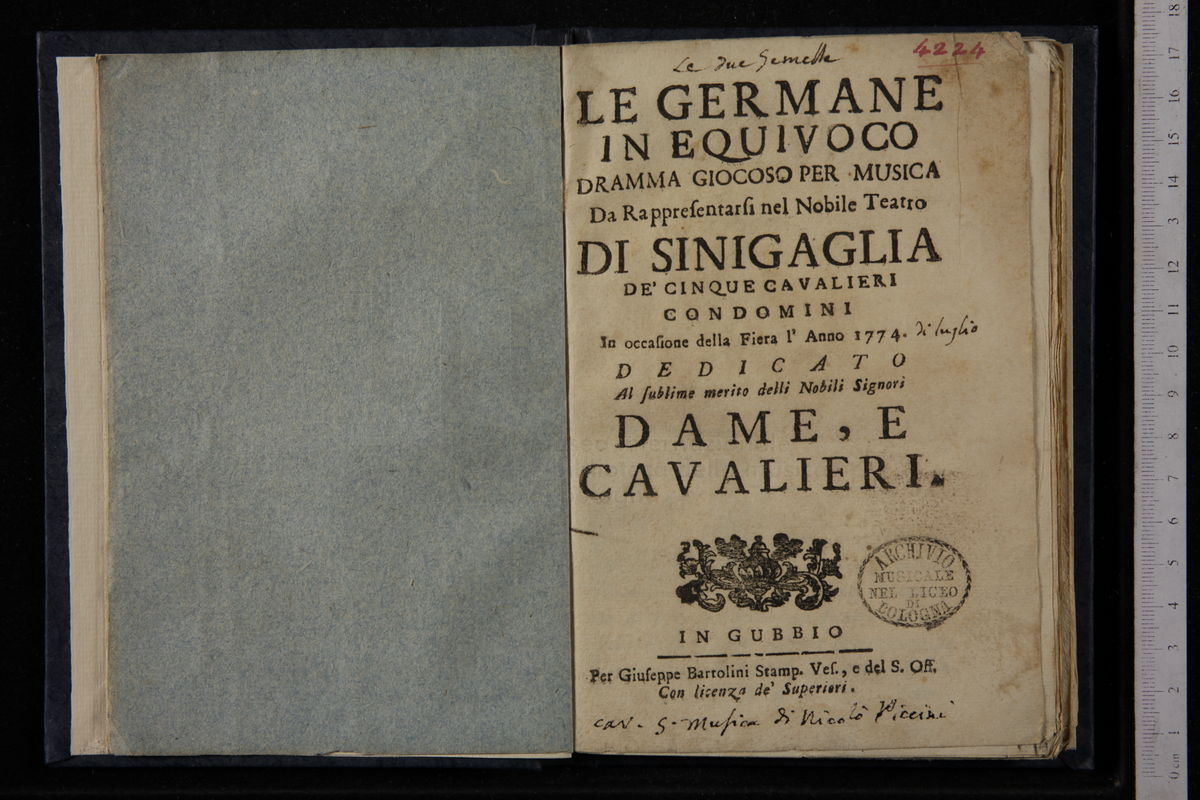 4224
Le due Gemelle
LE GERMANE
IN EQUIVOCO
DRAMMA GIOCOSO PER MUSICA
Da Rappreſentarſi nel Nobile Teatro
DI SINIGAGLIA
DE' CINQUE CAVALIERI
CONDOMINI
In occaſione della Fiera l' Anno 1774. di luglio
DEDICATO
Al ſublime merito delli Nobili Signori
DAME, E
CAVALIERI.
ARCHIVIO
MUSICALE
NEL LICEO
DI
BOLOGNA
IN GUBBIO
Per Giuſeppe Bartolini Stamp. Veſ., e del S. Off.
Con licenza de' Superiori.
car. 5. Muſica di Nicolò Piccini
18
17
16
15
14
13
12
11
10
9
8
7
6
5
4
3
2
1
0 cm